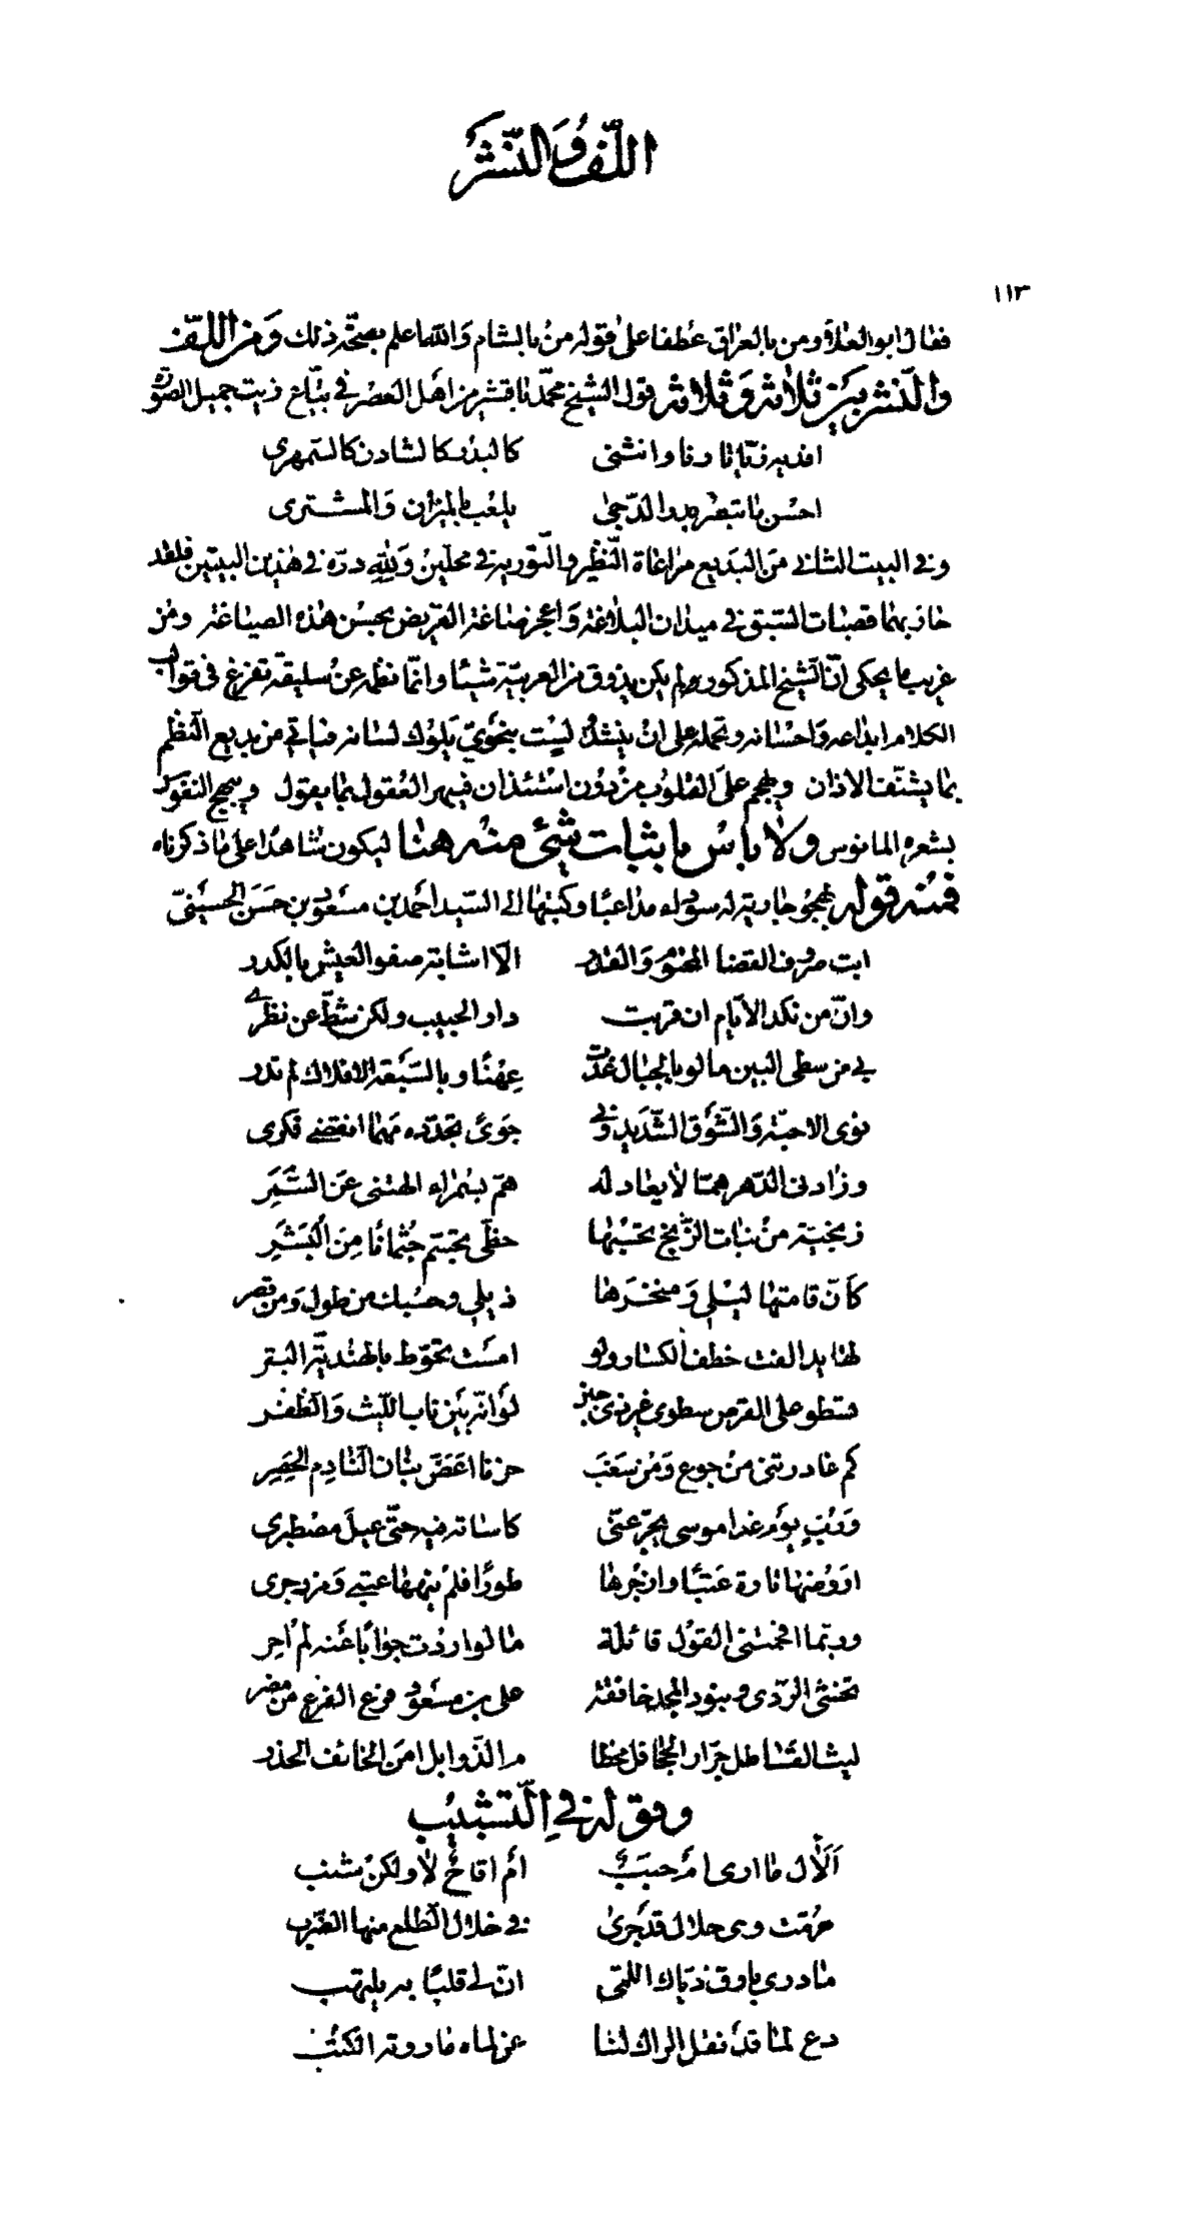 اللف والنشر
١١٣
فقال ابو العلاء ومن بالعراق عطفا على قوله من بالشام والله اعلم بصحة ذلك ومن اللف
والنشر بين ثلاثة وثلاثة قول الشيخ محمد بن قشير من اهل العصر في بياع زيت جميل الصورة
كالبدر كالشادن كالسمهري
احسن ما تبصر بدر الدجى يلعب بالميزان والمشتري
وفي البيت الثاني من البديع مراعاة النظير والتورية في محلين ولله دره في هذين البيتين فلقد
حاز بهما قصبات السبق في ميدان البلاغة واعجز صاغة القريض بحسن هذه الصياغة ومن
غريب ما يحكى ان الشيخ المذكور لم يكن يذوق من العربية شيئا وانما نظمه عن سليقة تفرغ في قوالب
الكلام ابداعه واحسانه وتحمله على ان ينشد ليست بنحوي يلوك لسانه فياتي من بديع النظم
بما يشنف الاذان ويهجم على القلوب من دون استئذان فيبهر العقول بما يقول ويبهج النفوس
بشعره المانوس ولا باس باثبات شيء منه هنا ليكون شاهدا على ما ذكرناه
فمنه قوله يهجو جارية له سوداء مداعبا وكتبها الى السيد احمد بن مسعود بن حسن الحسيني
ابت صروف القضا المحتوم والقدر الا اشابة صفو العيش بالكدر
وان من نكد الايام ان قربت دار الحبيب ولكن شط عن نظري
بي من سطى البين ما لو بالجبال غدت عهنا وبالسبعة الافلاك لم تدر
نوى الاحبة والشوق الشديد وفي جوى تجدده مهما انقضى فكري
وزادني الدهر هما لا يعادله هم بسمراء الهتني عن السمر
زنجية من بنات الزنج تحسبها حظي تجسم جثمانا من البشر
كان قامتها ليلي ومنخرها ذيلي وحسبك من طول ومن قصر
لها يد الفت خطف الكسار ولو امست تحوط بالهندية البتر
تسطو على القرص سطوى غير ذي جبن لو انه بين ناب الليث والظفر
كم غادرتني من جوع ومن سغب حزنا اعض بنان النادم الحصر
ورب يوم غدا موسى يجرعني كاساته فيه حتى عيل مصطبري
اروضها تارة عتبا وازجرها طورا فلم ينهها عتبي ومزدجري
وربما افحمتني القول قائلة ما لو اردت جوابا عنه لم احر
تخشى الردى وبنود المجد خافقة على بن مسعود فرع الفرع من مضر
ليث القنا ظل جرار الجحافل م الذوابل امن الخائف الحذر
وقوله في التشبيب
الآل ما ارى ام حبب ام اقاح لا ولكن شنب
حرمت وهي حلال قد جرى في خلال الطلع منها الضرب
ما درى بارق ذياك اللمى ان لي قلبا به يلتهب
دع لما قد نقل الراك لنا عن لماه ما روته الكتب